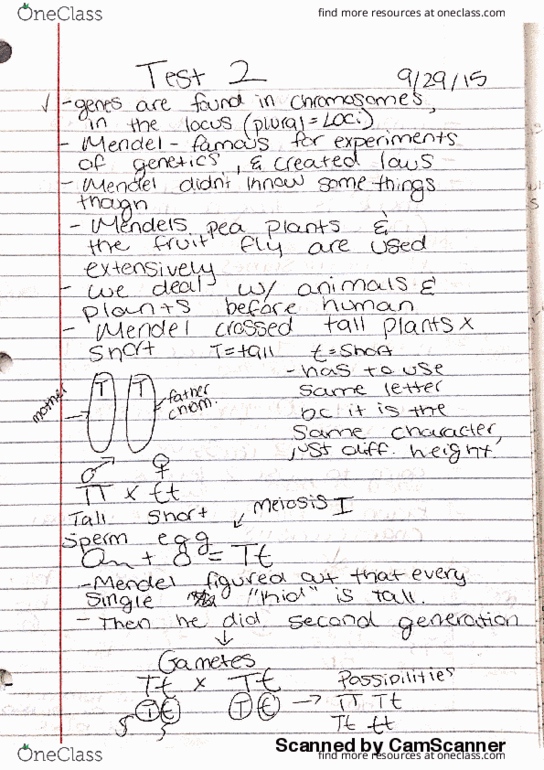 OneClass
find more resources at oneclass.com
Test 2
9/29/15
√ - genes are found in chromosomes,
in the locus (plural = Loci)
- Mendel - famous for experiments
of genetics, & created laws
- Mendel didn't know some things
thogn
- Mendels pea plants &
the fruit fly are used
extensively
- we deal w/ animals &
plants before human
- Mendel crossed tall plants x
short T=tall t=short
- has to use
same letter
bc it is the
same character,
just diff. height.
mother
T T
father
chrom.
♂ ♀
TT x tt
Tall Short
Meiosis I
sperm egg
+ = Tt
- Mendel figured out that every
single "kid" is Tall.
- Then he did second generation
Gametes
Tt x Tt
Possibilities
T t T t → TT Tt
Tt tt
Scanned by CamScanner
OneClass
find more resources at oneclass.com